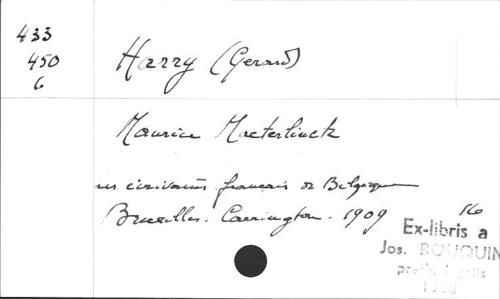 433
450
6
Harry (Gerard)
Maurice Maeterlinck
écrivains français de Belgique
Bruxelles. Carrington. 1909
16
Ex-libris a
Jos. BOUQUIN